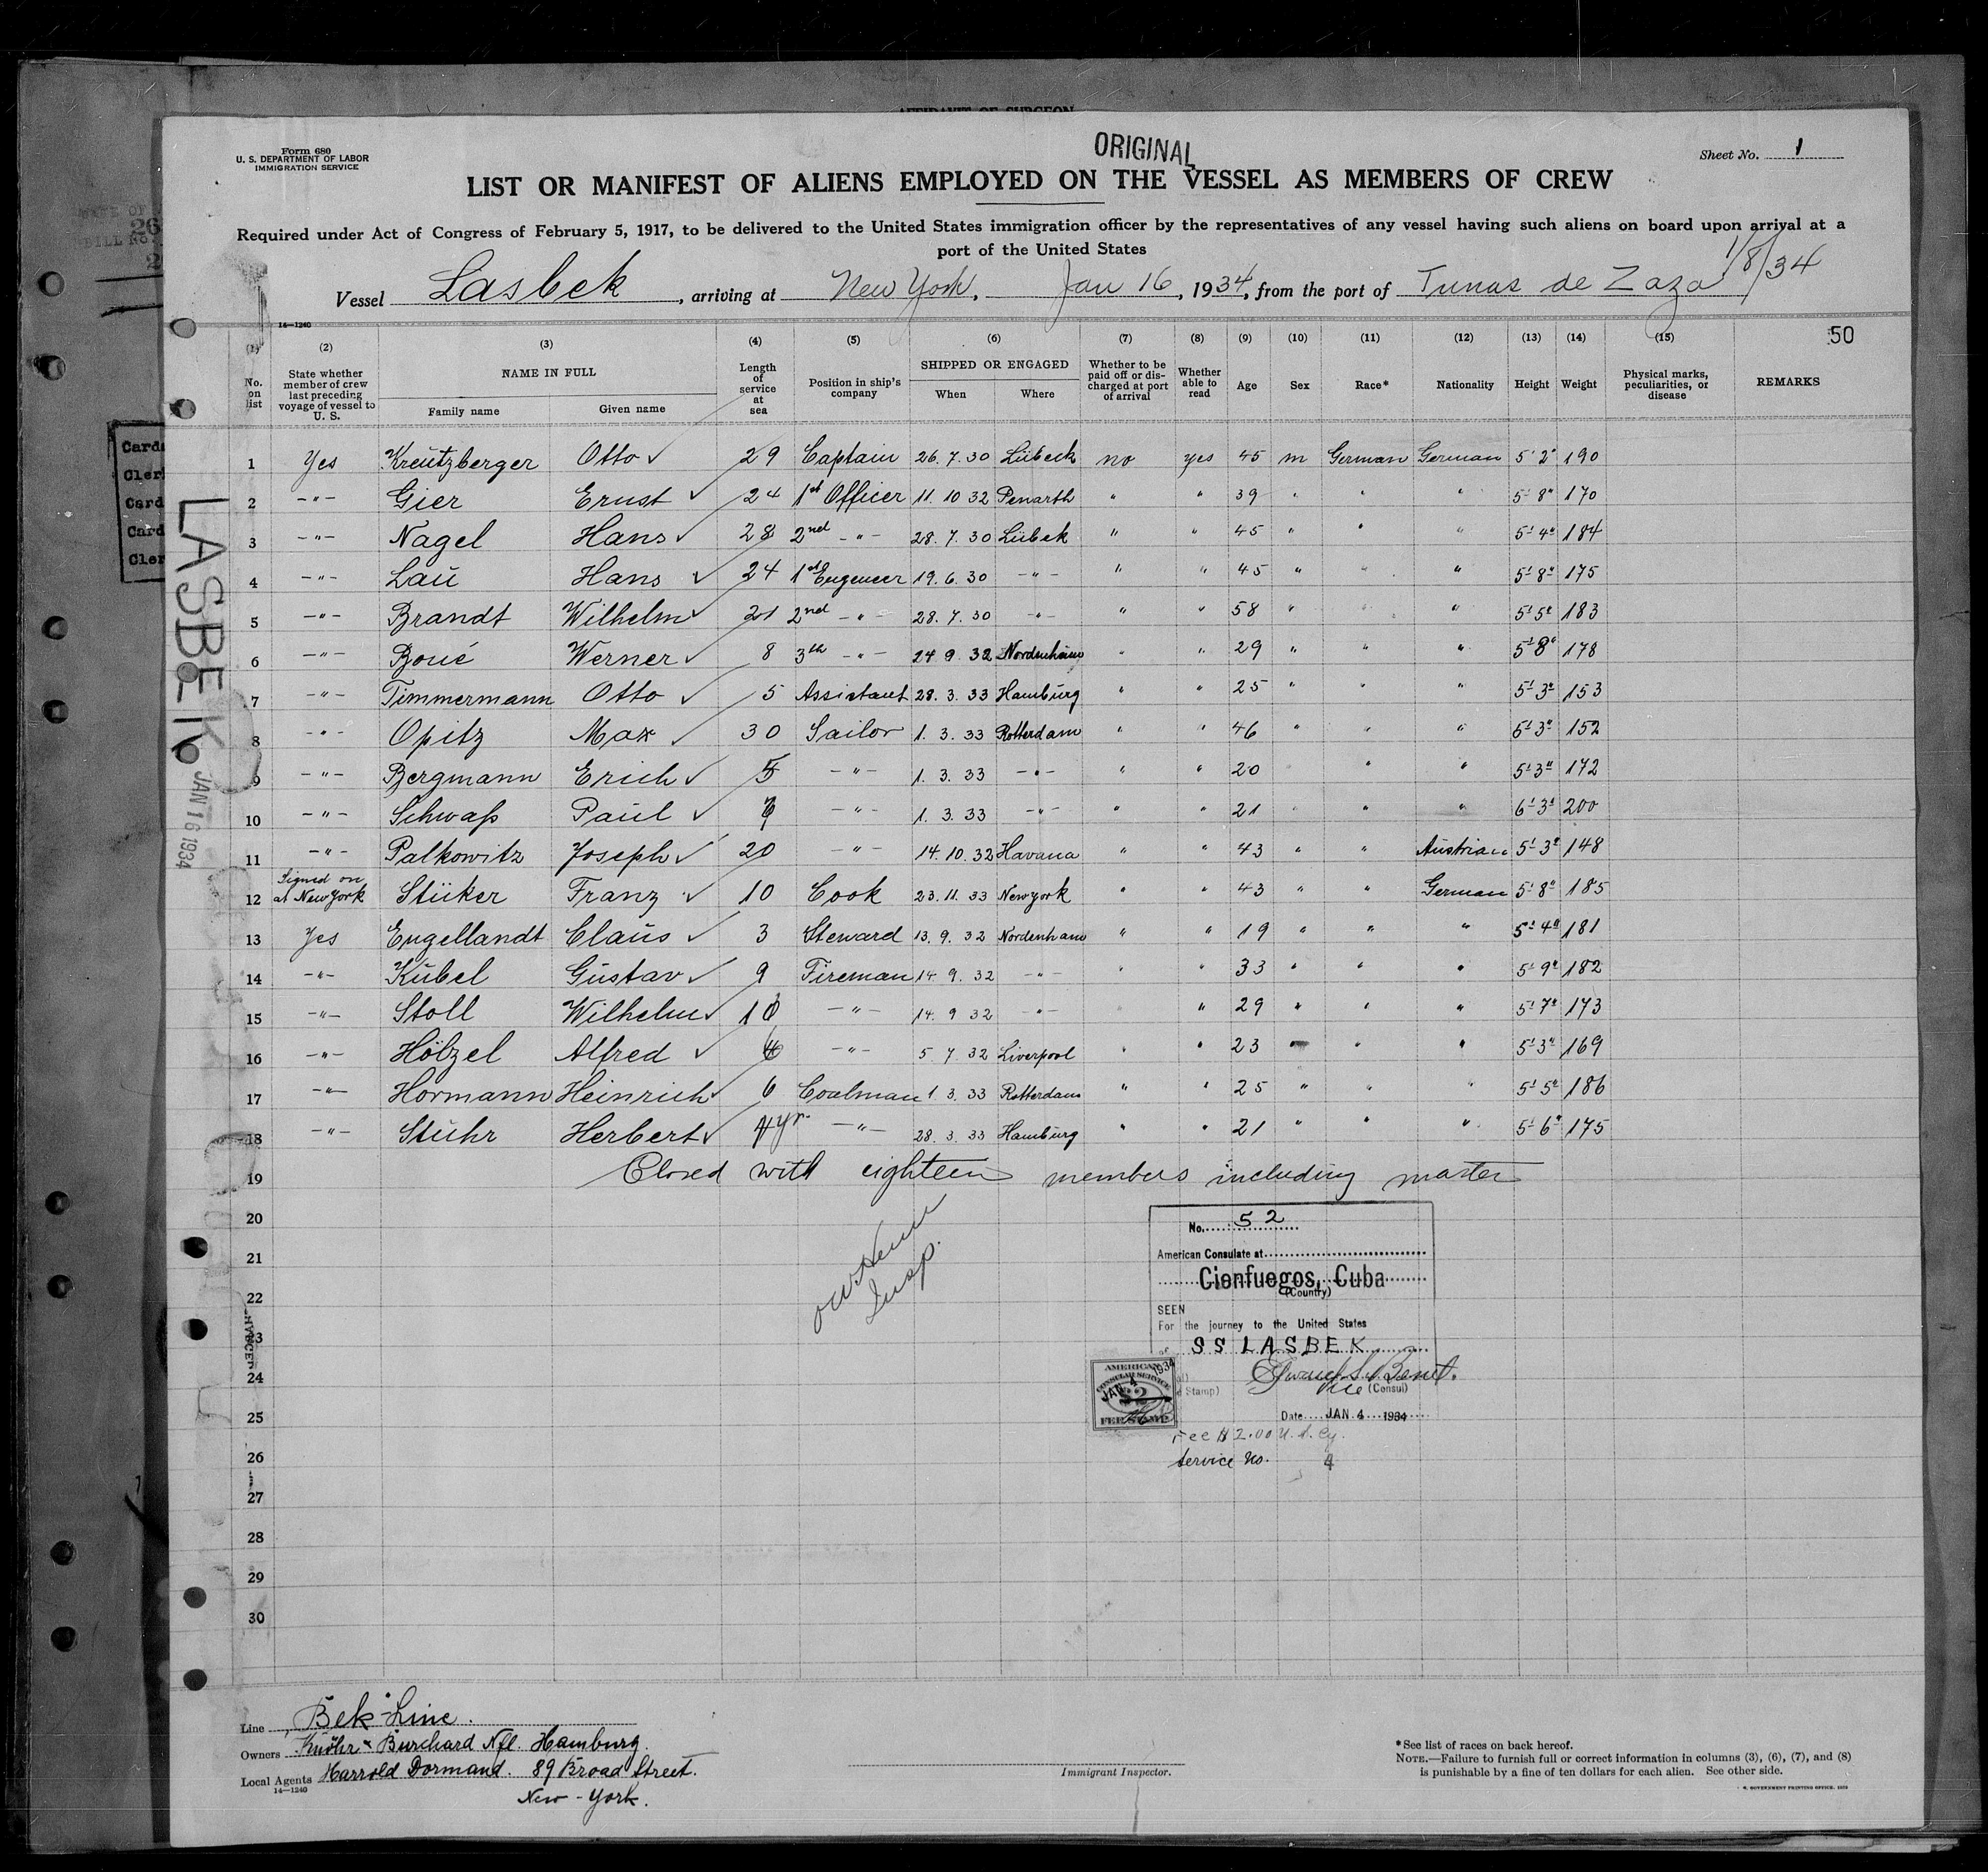 AFFIDAVIT OF SURGEON
ORIGINAL
Form 680
U. S. DEPARTMENT OF LABOR
IMMIGRATION SERVICE
Sheet No. 1
LIST OR MANIFEST OF ALIENS EMPLOYED ON THE VESSEL AS MEMBERS OF CREW
Required under Act of Congress of February 5, 1917, to be delivered to the United States immigration officer by the representatives of any vessel having such aliens on board upon arrival at a
port of the United States
1/8/34
Vessel Lasbek, arriving at New York, Jan 16, 1934, from the port of Tunas de Zaza
14—1240
50
(1) (2) (3) (4) (5) (6) (7) (8) (9) (10) (11) (12) (13) (14) (15)
No. on list State whether member of crew last preceding voyage of vessel to U. S. NAME IN FULL Family name Given name Length of service at sea Position in ship's company SHIPPED OR ENGAGED When Where Whether to be paid off or discharged at port of arrival Whether able to read Age Sex Race* Nationality Height Weight Physical marks, peculiarities, or disease REMARKS
1 Yes Kreutzberger Otto ✓ 29 Captain 26.7.30 Lübeck no yes 45 m German German 5' 2" 190
2 -"- Gier Ernst ✓ 24 1st Officer 11.10 32 Penarth " " 39 " " " 5' 8" 170
3 -"- Nagel Hans ✓ 28 2nd -"- 28.7.30 Lübek " " 45 " " " 5' 4" 184
4 -"- Laŭ Hans ✓ 24 1st Engeneer 19.6.30 -"- " " 45 " " " 5' 8" 175
5 -"- Brandt Wilhelm ✓ 21 2nd -"- 28.7.30 -"- " " 58 " " " 5' 5" 183
6 -"- Boué Werner ✓ 8 3th -"- 24 9. 32 Nordenham " " 29 " " " 5' 8" 178
7 -"- Timmermann Otto ✓ 5 Assistant 28.3.33 Hamburg " " 25 " " " 5' 3" 153
8 -"- Opitz Max ✓ 30 Sailor 1.3.33 Rotterdam " " 46 " " " 5' 3" 152
9 -"- Bergmann Erich ✓ 5 -"- 1.3.33 -"- " " 20 " " 5' 3" 172
10 -"- Schwaß Paul ✓ -"- 1.3.33 -"- " " 21 " " " 6' 3" 200
11 -"- Palkowitz Joseph ✓ 20 -"- 14.10.32 Havana " " 43 " " Austrian 5' 3" 148
12 Signed on at New York Stüker Franz ✓ 10 Cook 23.11.33 New york " " 43 " " German 5' 8" 185
13 Yes Engellandt Claus ✓ 3 Steward 13.9.32 Nordenham " " 19 " " " 5' 4" 181
14 -"- Kübel Gustav ✓ 9 Fireman 14 9. 32 -"- " " 33 " " " 5' 9" 182
15 -"- Stoll Wilhelm ✓ 10 -"- 14. 9 32 -"- " 29 " " " 5' 7" 173
16 -"- Hölzel Alfred ✓ 4 -"- 5.7.32 Liverpool " " 23 " " " 5' 3" 169
17 -"- Hormann Heinrich ✓ 6 Coalman 1 3. 33 Rotterdam " " 25 " " " 5' 5" 186
18 -"- Stuhr Herbert ✓ 4yr. -"- 28.3.33 Hamburg " " 21 " " " 5' 6" 175
19 Closed with eighteen members including master
20
21
22
23
24
25
26
27
28
29
30
Insp.
No. 52
American Consulate at
Cienfuegos, Cuba
(Country)
SEEN
For the journey to the United States
of SS LASBEK
Vice (Consul)
Stamp)
Date JAN 4 1934
AMERICAN
CONSULAR SERVICE
JAN 4 1934
$2
FEE STAMP
Fee $2.00 U.S. Cy.
Service No. 4
LASBEK
JAN 16 1934
Line Bek-Line.
Owners Knöhr & Burchard Nfl. Hamburg.
Local Agents Harrold Dormand. 89 Broad Street.
14—1240
New-York.
Immigrant Inspector.
*See list of races on back hereof.
NOTE.—Failure to furnish full or correct information in columns (3), (6), (7), and (8)
is punishable by a fine of ten dollars for each alien. See other side.